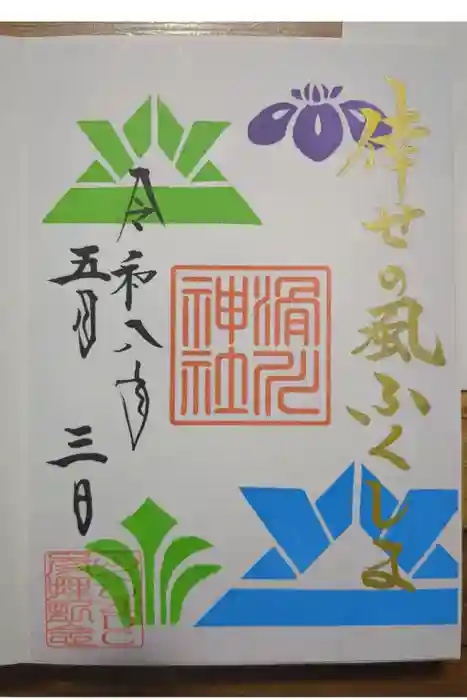 倖せの風ふくしま
滑川
神社
令和八年
五月三日